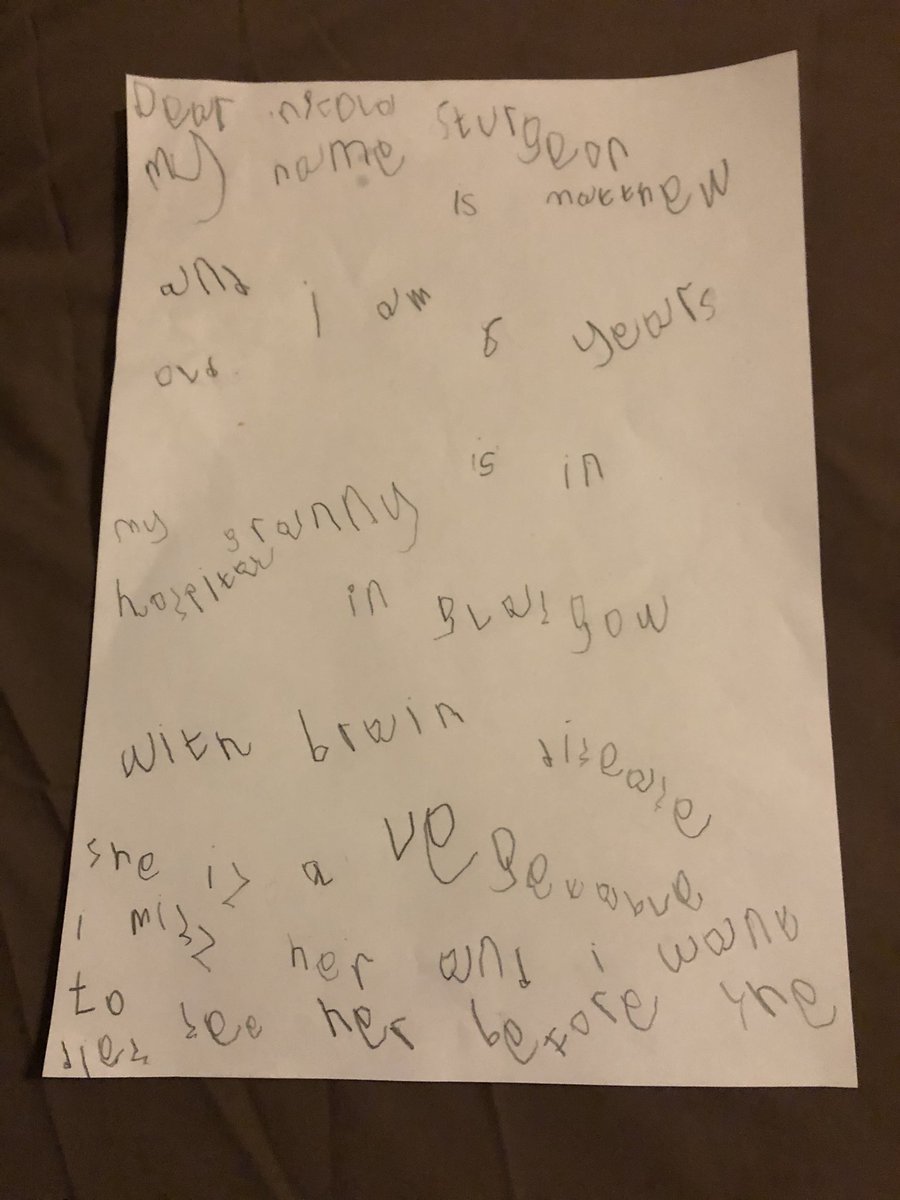 Dear nicola sturgeon
my name is matthew
and i am 6 years
old
my granny is in
hospital in glasgow
with brain disease
she is a vegetable
i miss her and i want
to see her before she
dies